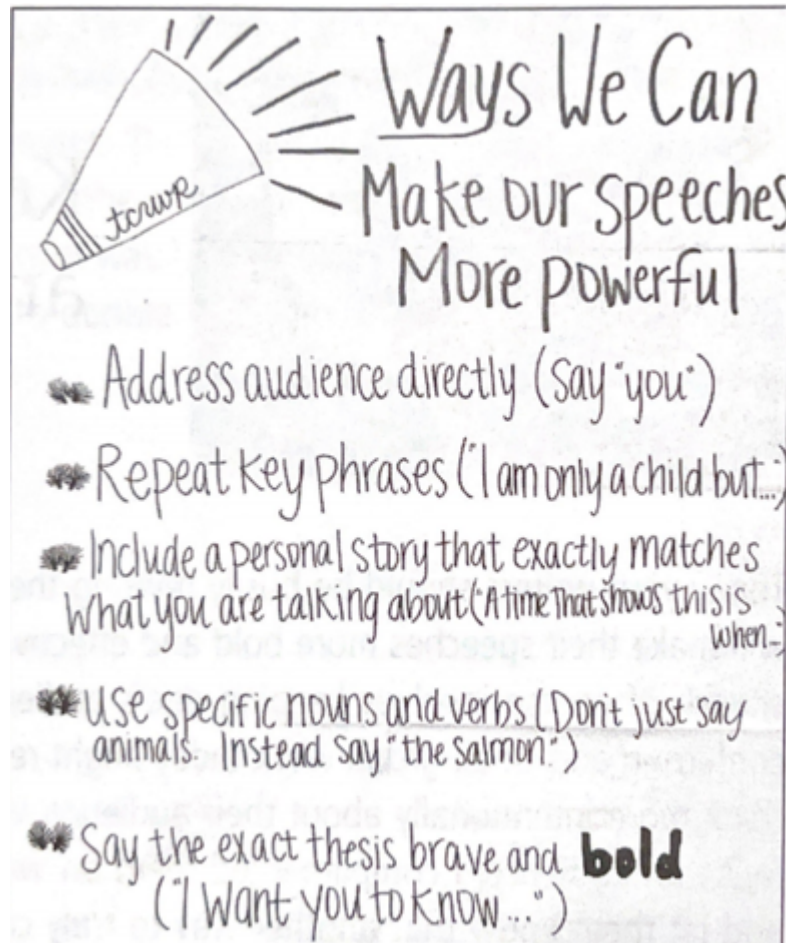 tcrwp
Ways We Can
Make our speeches
More powerful
Address audience directly (Say "you")
Repeat key phrases ("I am only a child but...")
Include a personal story that exactly matches
what you are talking about ("A time that shows this is
when...")
Use specific nouns and verbs (Don't just say
animals. Instead say, "the salmon.")
Say the exact thesis brave and bold
("I want you to know...")